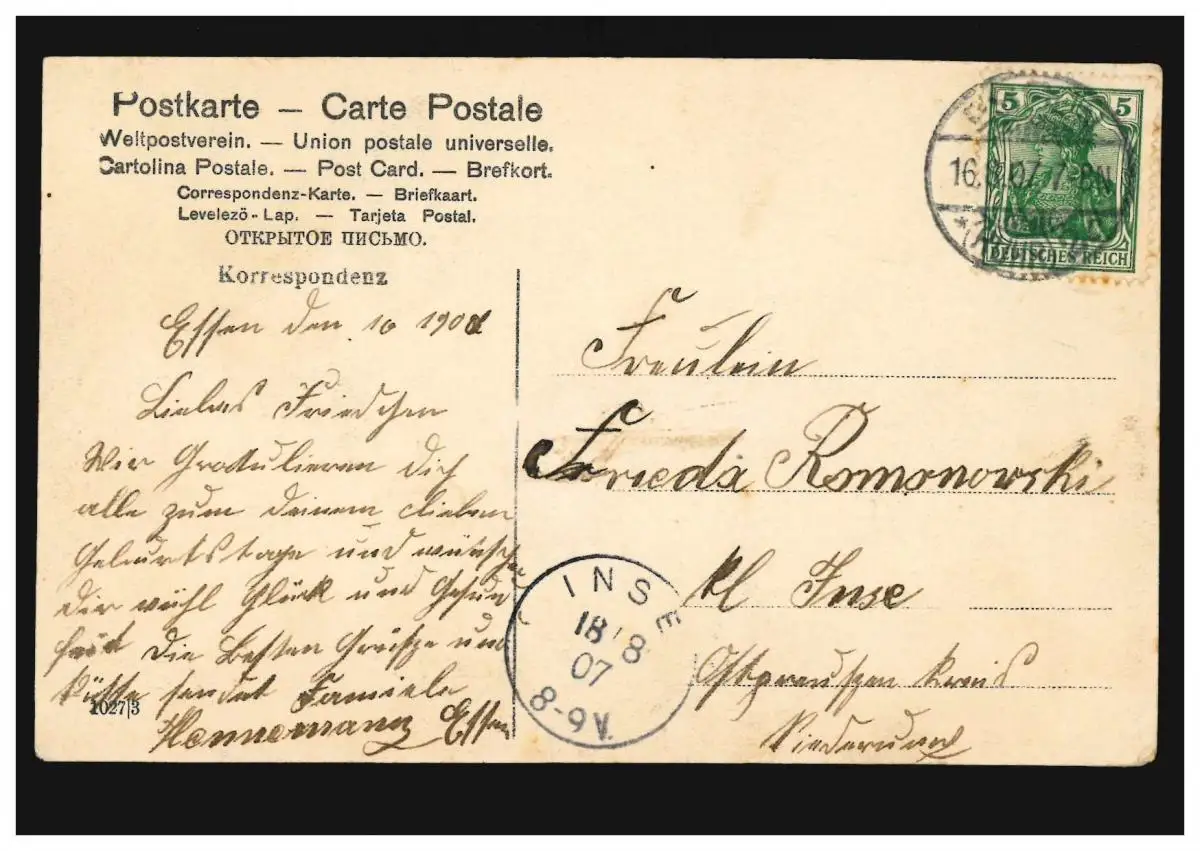 Postkarte – Carte Postale
Weltpostverein. — Union postale universelle.
Cartolina Postale. — Post Card. — Brefkort.
Correspondenz-Karte. — Briefkaart.
Levelezö-Lap. — Tarjeta Postal.
ОТКРЫТОЕ ПИСЬМО.
Korrespondenz
Essen den 16 190
Liebes Friedchen
Wir Gratulieren dich
alle zum deinem lieben
Geburtstage und wünsche
dir vühl Glück und Gesun
heit die Besten Grüsze und
Küsse sendet Famiele
Hennemann Essen
1027/3
5 5
DEUTSCHES REICH
16. 07. 7-8N
*(RUHR)
Freulein
Frieda Romonowski
kl Inse
Ostpreuszen kreis
Niederung
INSE
18/8
07
8-9V.